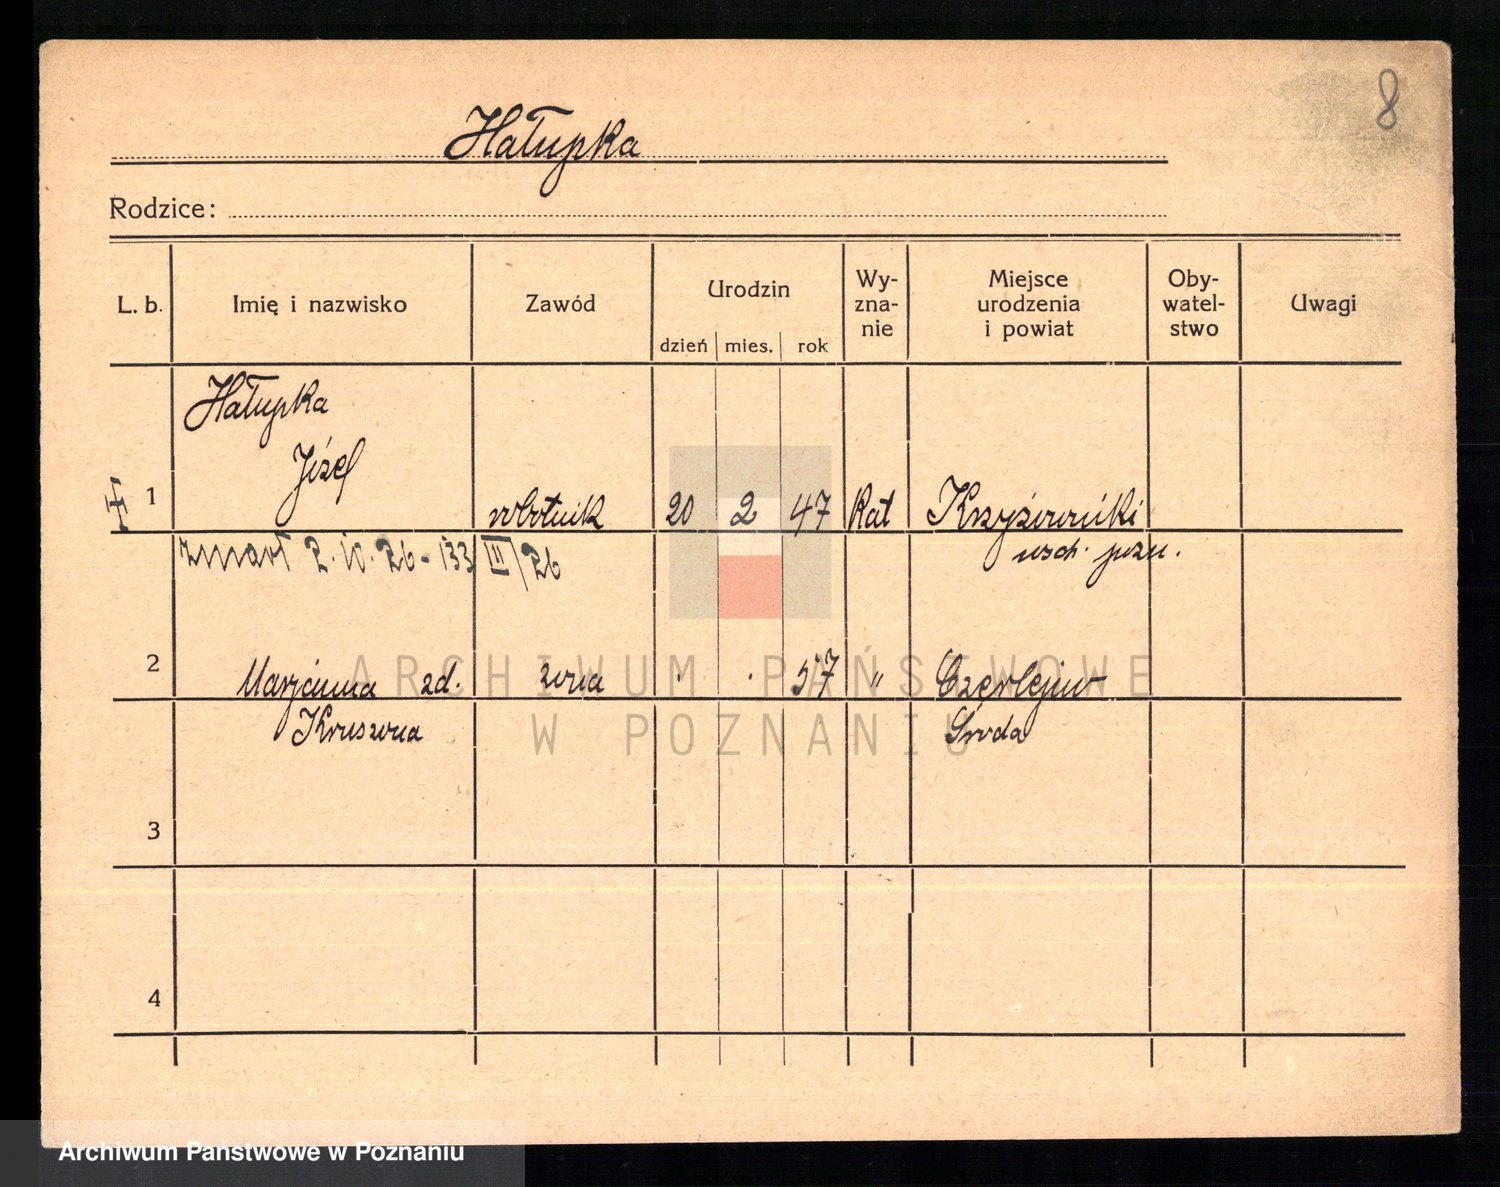 8
Hałupka
Rodzice:
L. b. Imię i nazwisko Zawód Urodzin dzień mies. rok Wy-zna-nie Miejsce urodzenia i powiat Oby-watel-stwo Uwagi
Hałupka
Józef
1 robotnik 20 2 47 Kat Krzyżowniki
zmarł 2.10.26 - 133 III/26 wsch. pozn.
2 Marjanna zd. żona . . 57 " Czerlejno
Kruszona Środa
3
4
ARCHIWUM PAŃSTWOWE
W POZNANIU
Archiwum Państwowe w Poznaniu